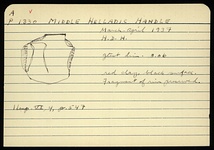 A
P 1330 MIDDLE HELLADIC HANDLE
March-April 1937
H.D.H.
0.06
red clay, black surface.
Fragment of rim preserved.
Hesp. VI, 4, p. 547